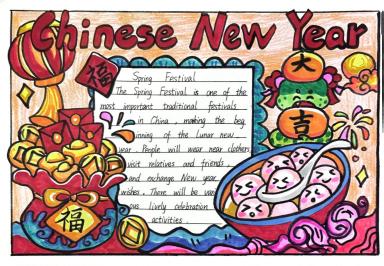 Chinese New Year
福
大
吉
Spring Festival
The Spring Festival is one of the
most important traditional festivals
in China, making the beg
inning of the lunar new
year. People will wear near clothers
visit relatives and friends,
and exchange New year
wishes. There will be var
ous lively celebration
activities.
福